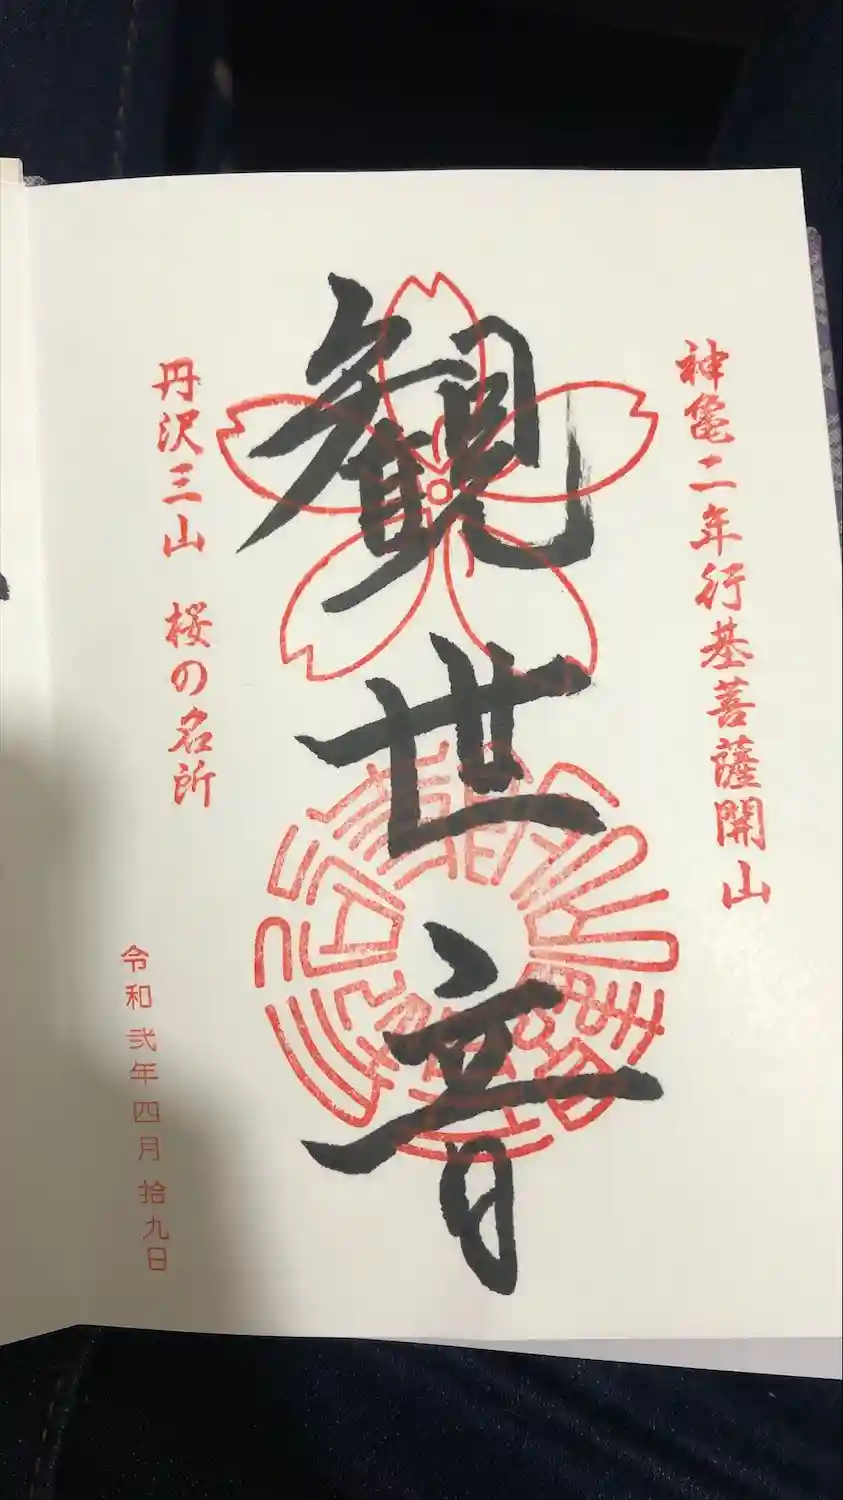 神亀二年行基菩薩開山
観世音
丹沢三山 桜の名所
令和弐年四月拾九日